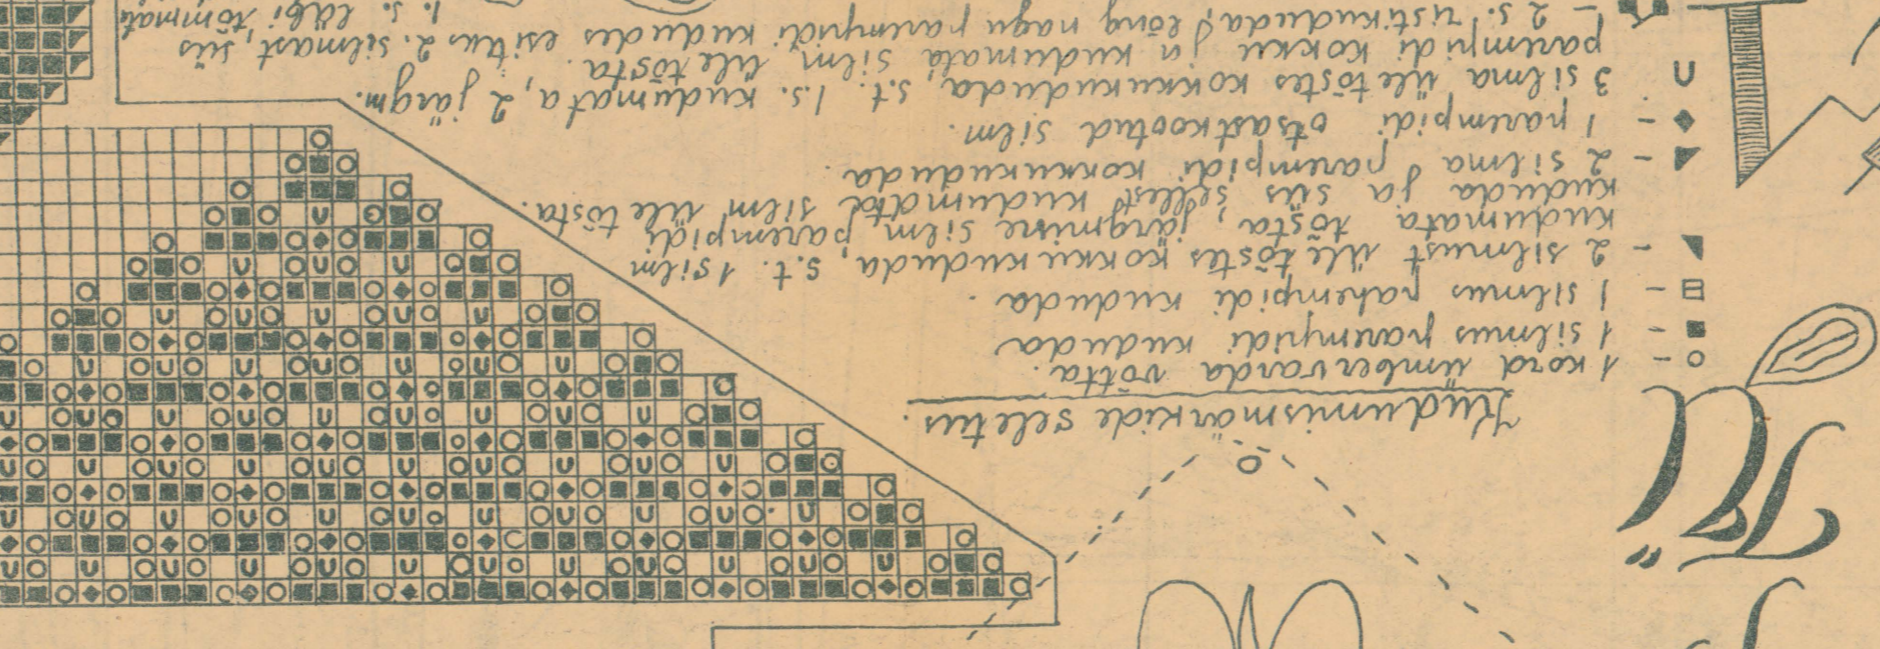 Kudumismärkide seletus.
1 kord ümber varda võtta.
1 silmus parempidi kududa
1 silmus pahempidi kududa.
2 silmust üle tõstes kokku kududa, s.t. 1 silm
kudumata tõsta, järgmine silm parempidi
kududa ja siis sellest kudumata silm üle tõsta.
2 silma parempidi kokkukududa
1 parempidi otsastkootud silm.
3 silma üle tõstes kokkukududa, s.t. 1.s. kudumata, 2 järgm.
parempidi kokku ja kudumata silm üle tõsta.
2 s. ristikududa, lõng nagu parempidi kududes esitus 2. silmast, siis
1. s. läbi